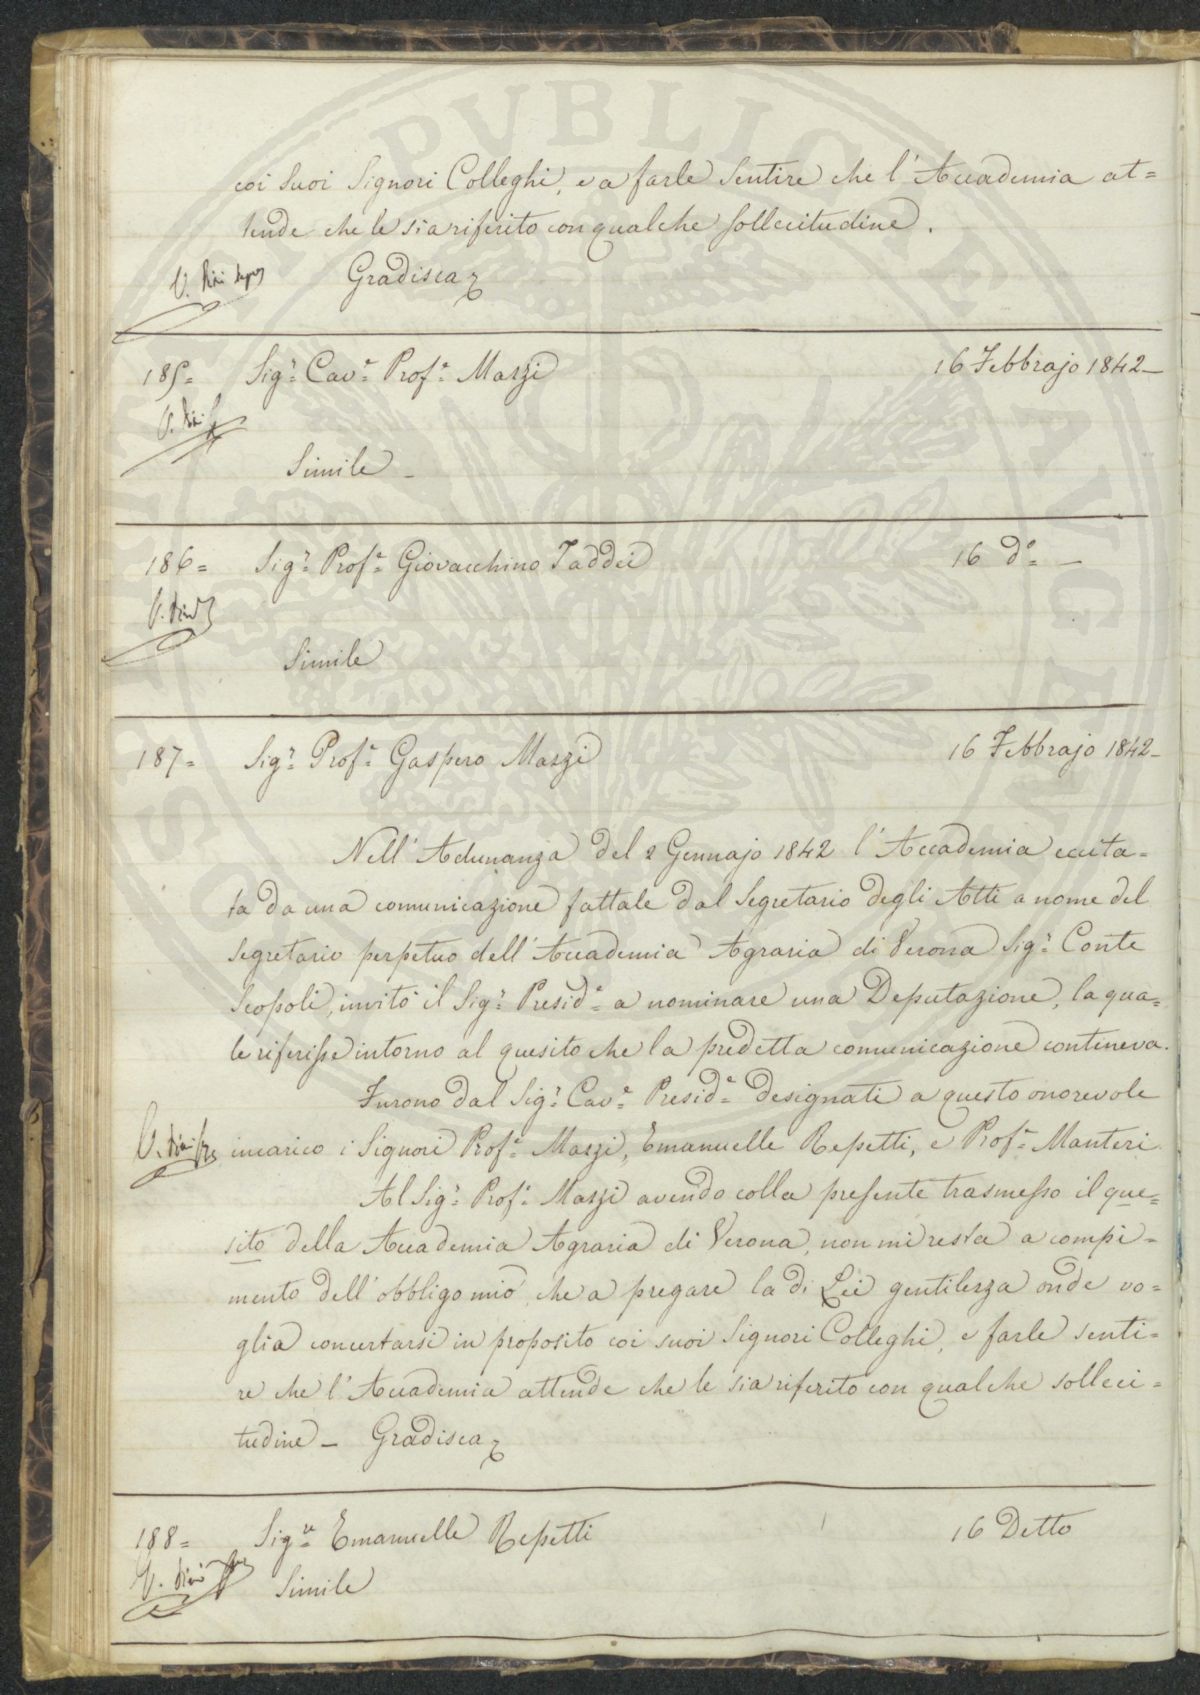 coi suoi Signori Colleghi, e a farle sentire che l'Accademia at=
tende che le sia riferito con qualche sollecitudine.
Gradisca
185= Sig.r Cav.e Prof.e Mazzi 16 Febbrajo 1842_
Simile_
186= Sig.r Prof.e Giovacchino Taddei 16 d.o _
Simile
187= Sig.r Prof.e Gaspero Mazzi 16 Febbrajo 1842_
Nell'Adunanza del 2 Gennajo 1842 l'Accademia eccita=
ta da una comunicazione fattale dal Segretario degli Atti a nome del
segretario perpetuo dell'Accademia Agraria di Verona Sig.r Conte
Scopoli, invitò il Sig.r Presid.e a nominare una Deputazione, la qua=
le riferisse intorno al quesito che la predetta comunicazione conteneva.
Furono dal Sig.r Cav.e Presid.e designati a questo onorevole
incarico i Signori Prof.e Mazzi, Emanuelle Repetti, e Prof.e Manteri
Al Sig.r Prof.e Mazzi avendo colla presente trasmesso il que=
sito della Accademia Agraria di Verona, non mi resta a compi=
mento dell'obbligo mio che a pregare la di Lei gentilezza onde vo=
glia concertarsi in proposito coi suoi Signori Colleghi, e farle senti=
re che l'Accademia attende che le sia riferito con qualche solleci=
tudine_ Gradisca
188= Sig.re Emanuelle Repetti 16 Detto
Simile